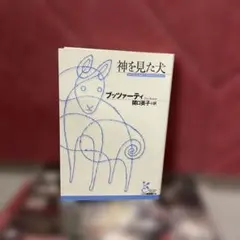 神を見た犬
ブッツァーティ
関口英子・訳